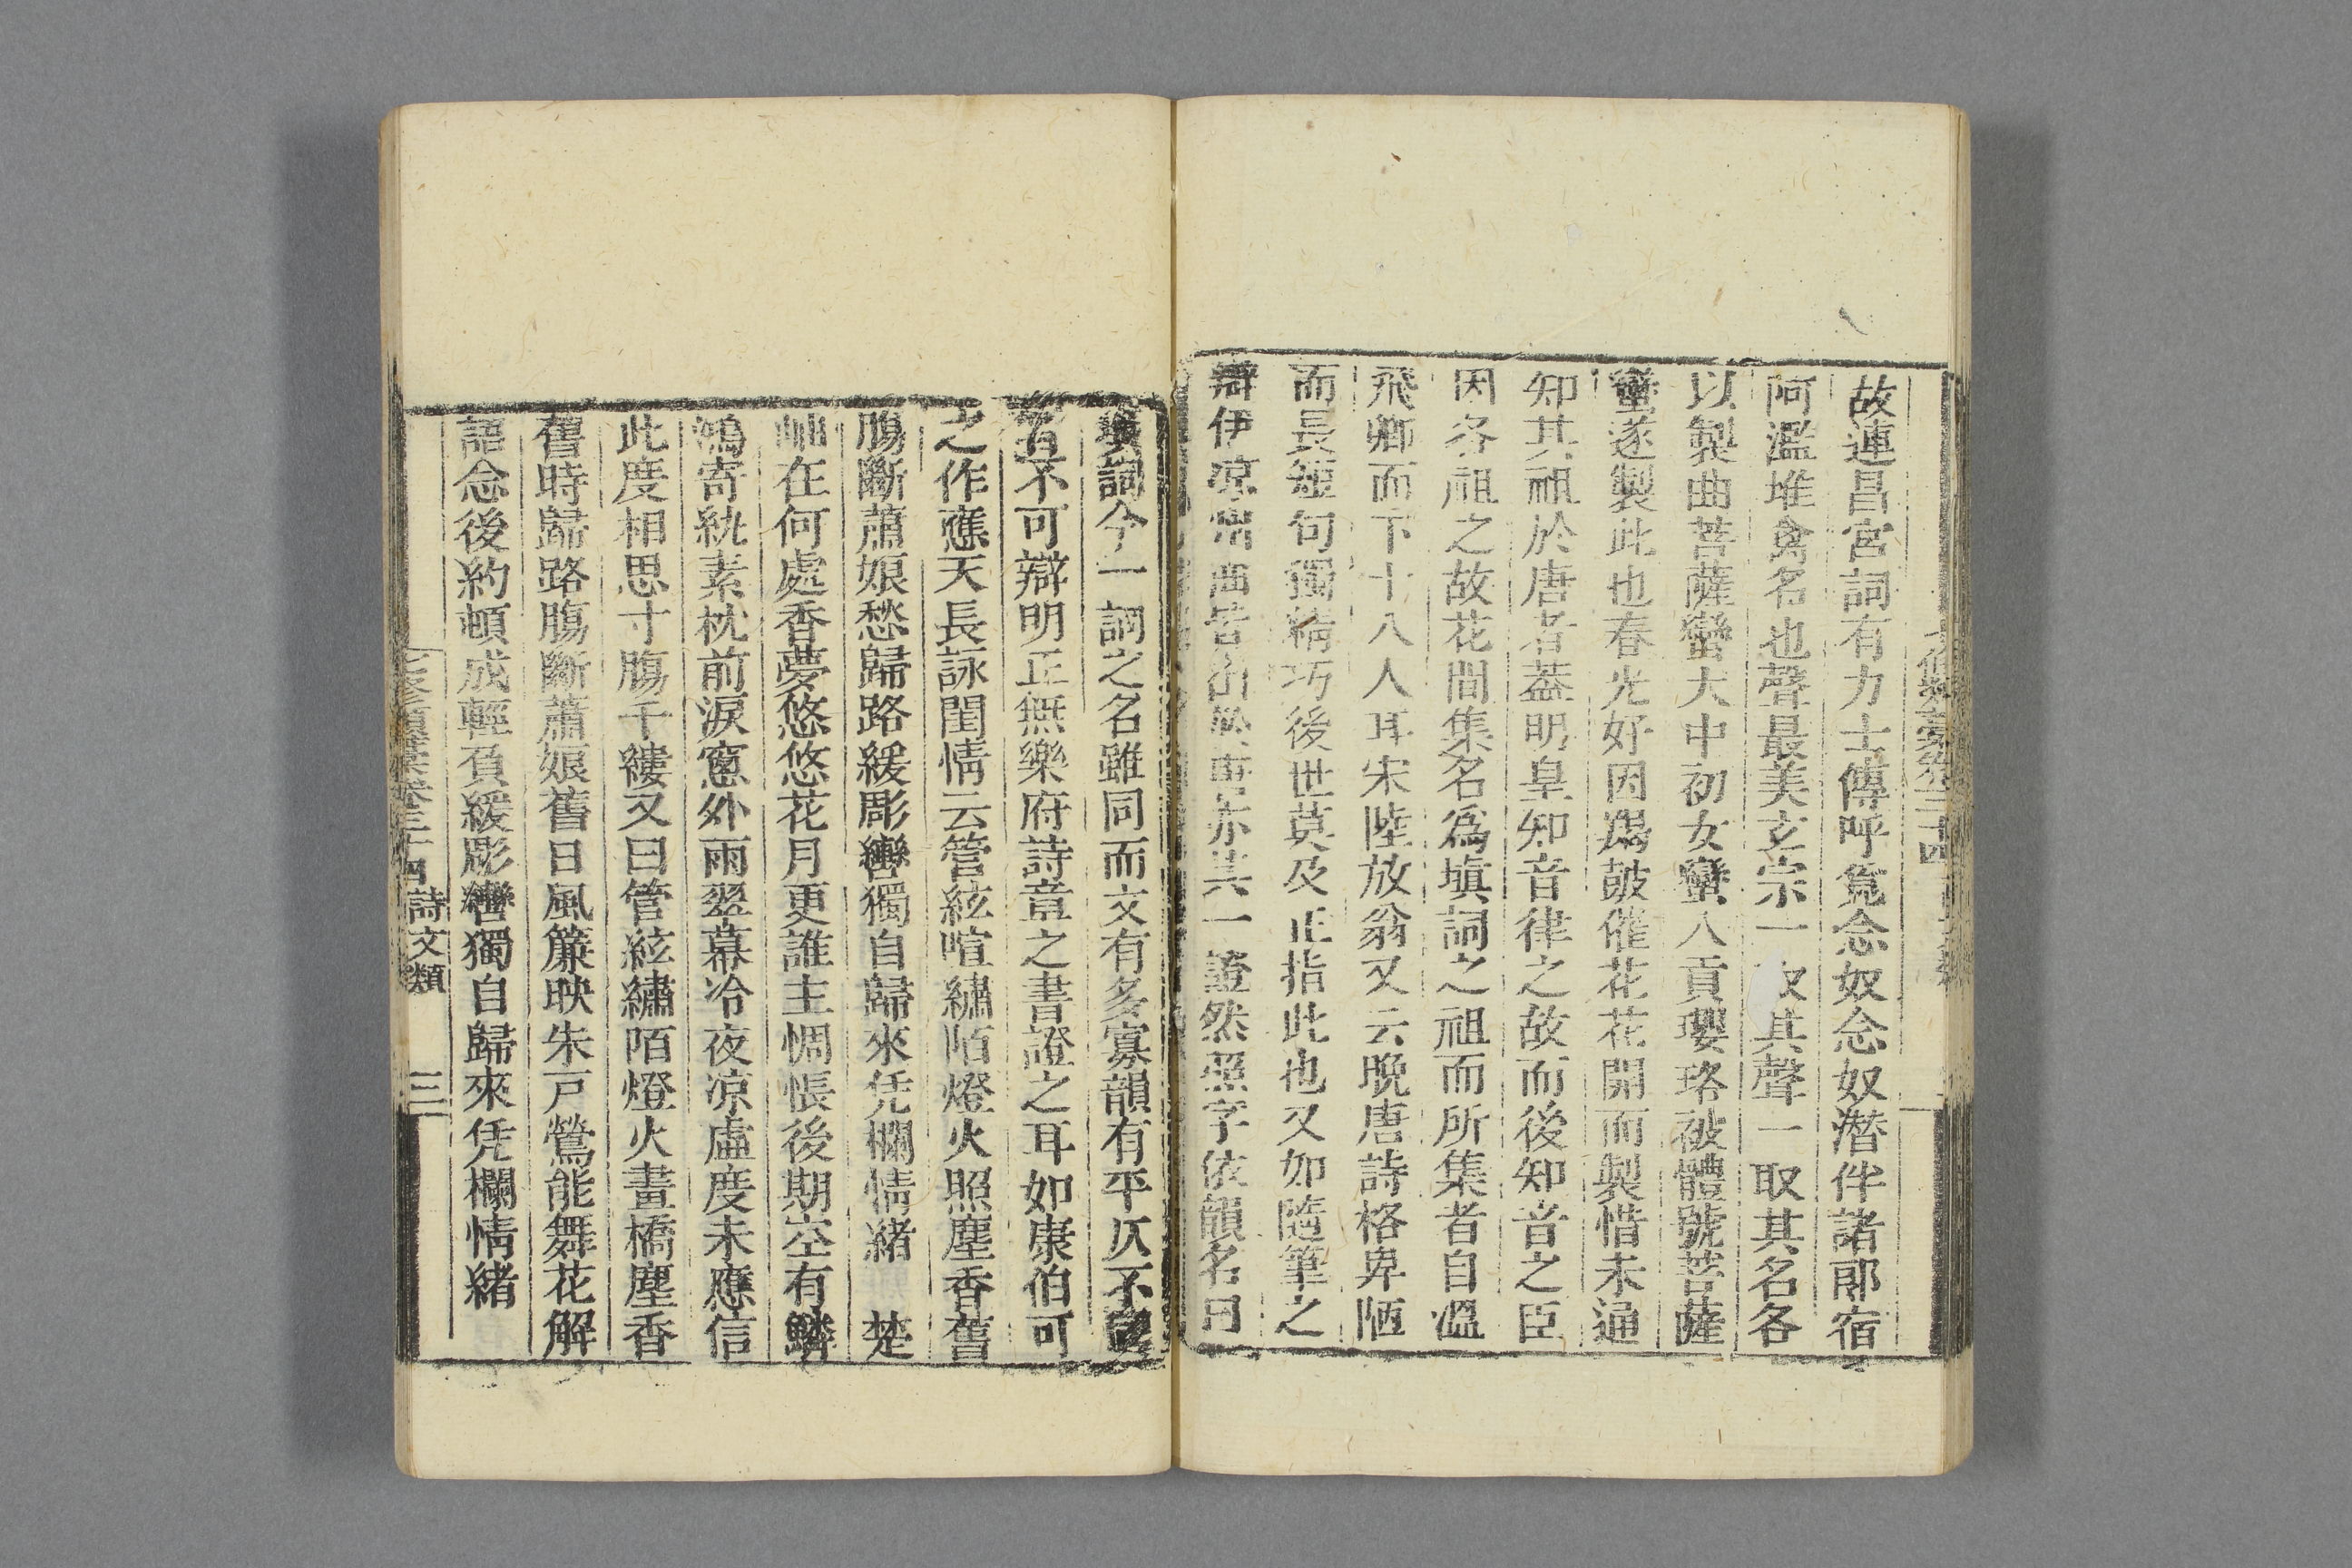 故連昌宮詞有力士傳呼覓念奴念奴潛伴諸郎宿
阿濫堆禽名也聲最美玄宗一取其聲一取其名各
以製曲菩薩蠻大中初女蠻入貢瓔珞被體號菩薩
蠻遂製此也春光好因羯鼓催花花開而製惜未通
知其祖於唐者蓋明皇知音律之故而後知音之臣
因各祖之故花間集名為塡詞之祖而所集者自溫
飛卿而下十八人耳宋陸放翁又云晚唐詩格卑陋
而長短句獨精巧後世莫及正指此也又如隨筆之
辯伊凉州曲皆出於唐亦其一證然照字依韻名曰
塡詞今一調之名雖同而文有多寡韻有平仄不
者不可辯明正無樂府詩章之書證之耳如康伯可
之作應天長詠閨情云管絃喧繡陌燈火照塵香舊
腸斷蕭娘愁歸路緩彫轡獨自歸來凭欄情緒 楚
岫在何處香夢悠悠花月更誰主惆悵後期空有鱗
鴻寄紈素枕前淚窻外雨翠幕冷夜凉虛度未應信
此度相思寸腸千縷又曰管絃繡陌燈火畫橋塵香
舊時歸路腸斷蕭娘舊日風簾映朱戸鶯能舞花解
語念後約頓成輕負緩彫轡獨自歸來凭欄情緒
卷三十四 詩文類 三